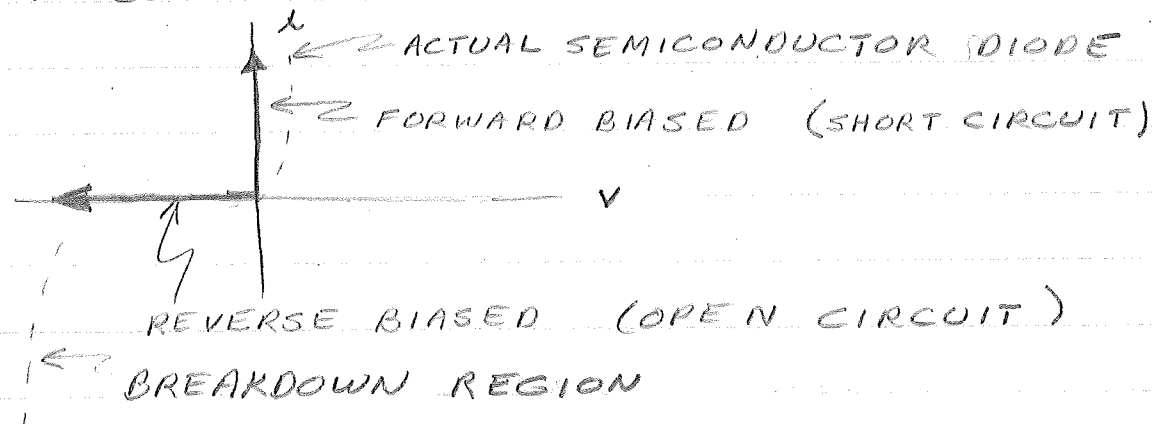 i
ACTUAL SEMICONDUCTOR DIODE
FORWARD BIASED (SHORT CIRCUIT)
V
REVERSE BIASED (OPEN CIRCUIT)
BREAKDOWN REGION